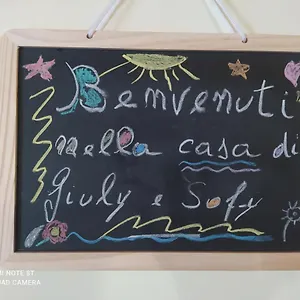 Benvenuti
nella casa di
Giuly e Sofy
NOTE 5T
CAMERA